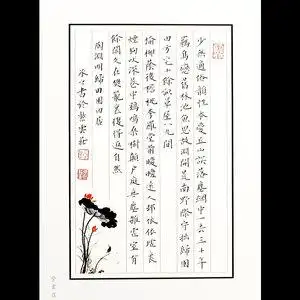 少無適俗韻性本愛丘山誤落塵網中一去三十年
羈鳥戀舊林池魚思故淵開荒南野際守拙歸園
田方宅十餘畝草屋八九間
榆柳蔭後檐桃李羅堂前曖曖遠人村依依墟里
煙狗吠深巷中鷄鳴桑樹顛戶庭無塵雜虛室有
餘閒久在樊籠裏復得返自然
陶淵明歸園田居
書於紫雲莊